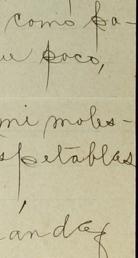 como pa-
poco,
mi moles-
spetables